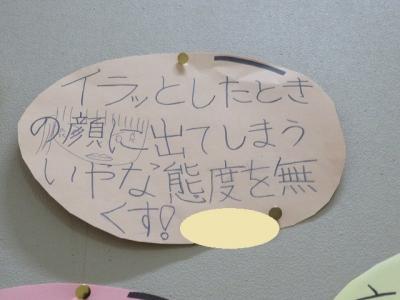 イラッとしたとき
の顔に出てしまう
いやな態度を無
くす!